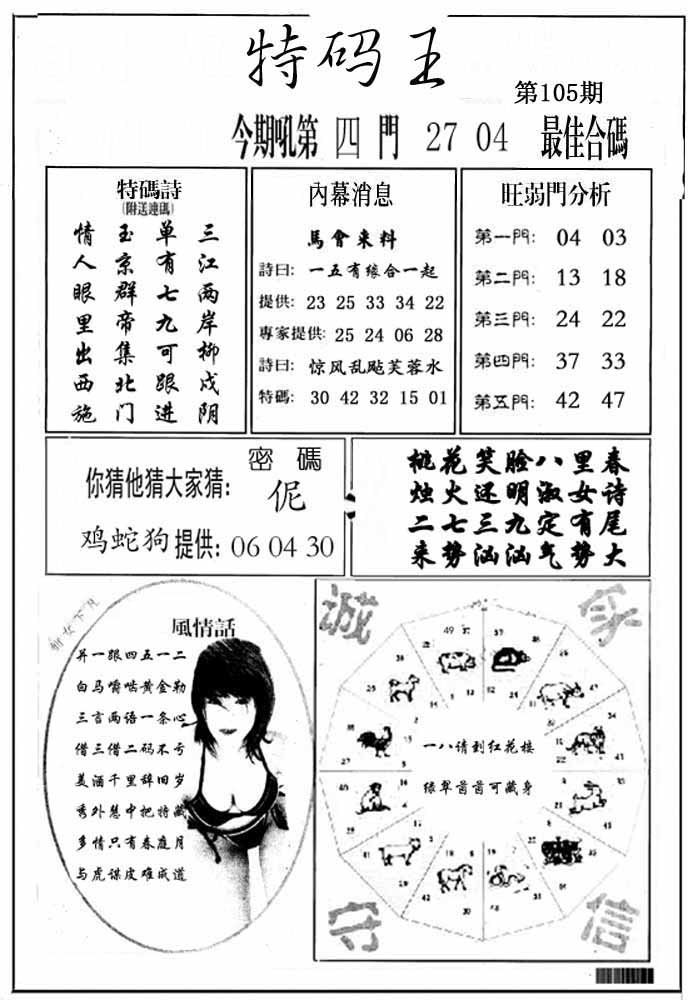 特码王
第105期
今期吼第 四 門 27 04 最佳合碼
特碼詩
(附送連碼)
情 玉 单 三
人 京 有 江
眼 群 七 两
里 帝 九 岸
出 集 可 柳
西 北 跟 戍
施 门 进 阴
內幕消息
馬會来料
詩曰: 一五有缘合一起
提供: 23 25 33 34 22
專家提供: 25 24 06 28
詩曰: 惊风乱飐芙蓉水
特碼: 30 42 32 15 01
旺弱門分析
第一門: 04 03
第二門: 13 18
第三門: 24 22
第四門: 37 33
第五門: 42 47
你猜他猜大家猜:
密碼
伲
鸡蛇狗提供: 06 04 30
桃花笑脸八里春
烛火还明淑女诗
二七三九定有尾
来势汹汹气势大
風情話
并一跟四五一二
白马嚼啮黄金勒
三言两语一条心
借三借二码不亏
美酒千里辞旧岁
秀外慧中把特藏
多情只有春庭月
与虎谋皮难成道
诚
守
信
一八请到红花楼
绿翠茵茵可藏身
49 37